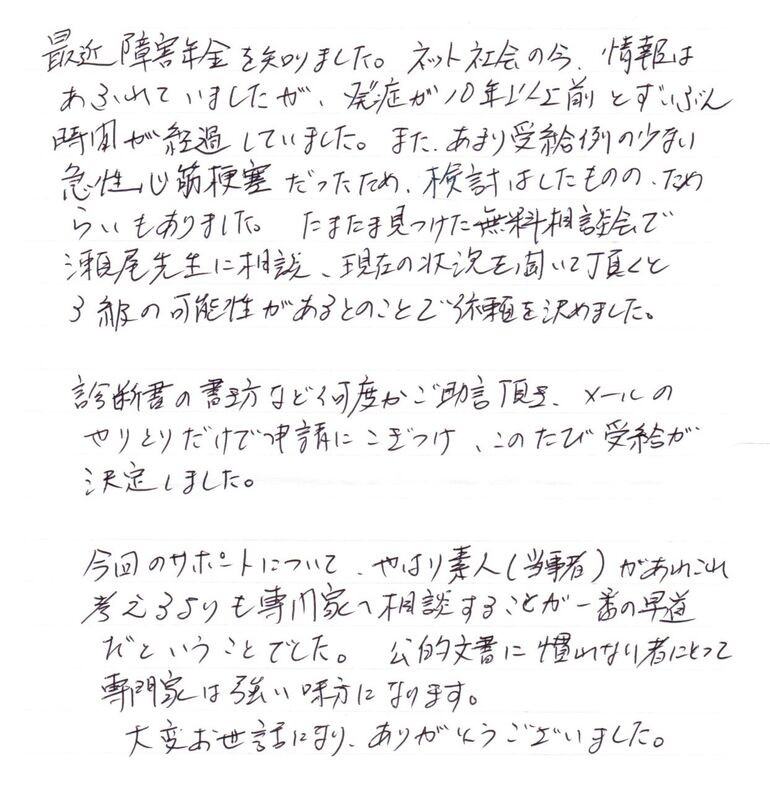 最近障害年金を知りました。ネット社会の今、情報は
あふれていましたが、発症が10年以上前とずいぶん
時間が経過していました。また、あまり受給例の少ない
急性心筋梗塞だったため、検討はしたものの、ため
らいもありました。たまたま見つけた無料相談会で
瀬尾先生に相談、現在の状況を聞いて頂くと
3級の可能性があるとのことで依頼を決めました。
診断書の書き方など何度かご助言頂き、メールの
やりとりだけで申請にこぎつけ、このたび受給が
決定しました。
今回のサポートについて、やはり素人(当事者)があれこれ
考えるよりも専門家へ相談することが一番の早道
だということでした。公的文書に慣れない者にとって
専門家は強い味方になります。
大変お世話になり、ありがとうございました。